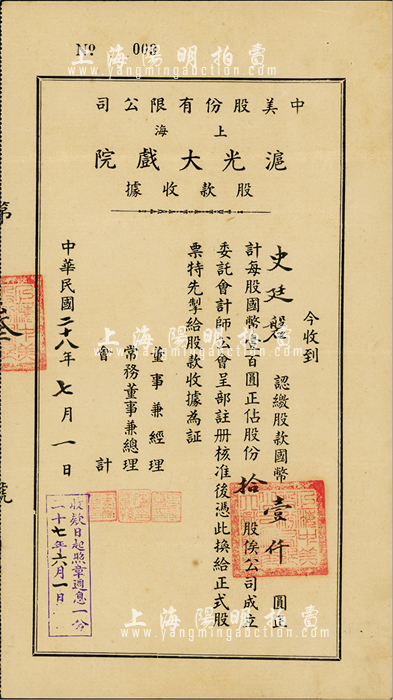 上海陽明拍賣
www.yangmingauction.com
№ 003
中美股份有限公司
上海
滬光大戲院
股款收據
今收到
史廷磐 認繳股款國幣壹仟圓正
計每股國幣壹百圓正佔股份拾股俟公司成立
委託會計師公會呈部註册核准後憑此換給正式股
票特先掣給股款收據為証
董事兼經理
常務董事兼總理
會計
中華民國二十八年七月一日
股款日起照章週息一分
二十七年六月一日
第叁號
上海陽明拍賣
www.yangmingauction.com